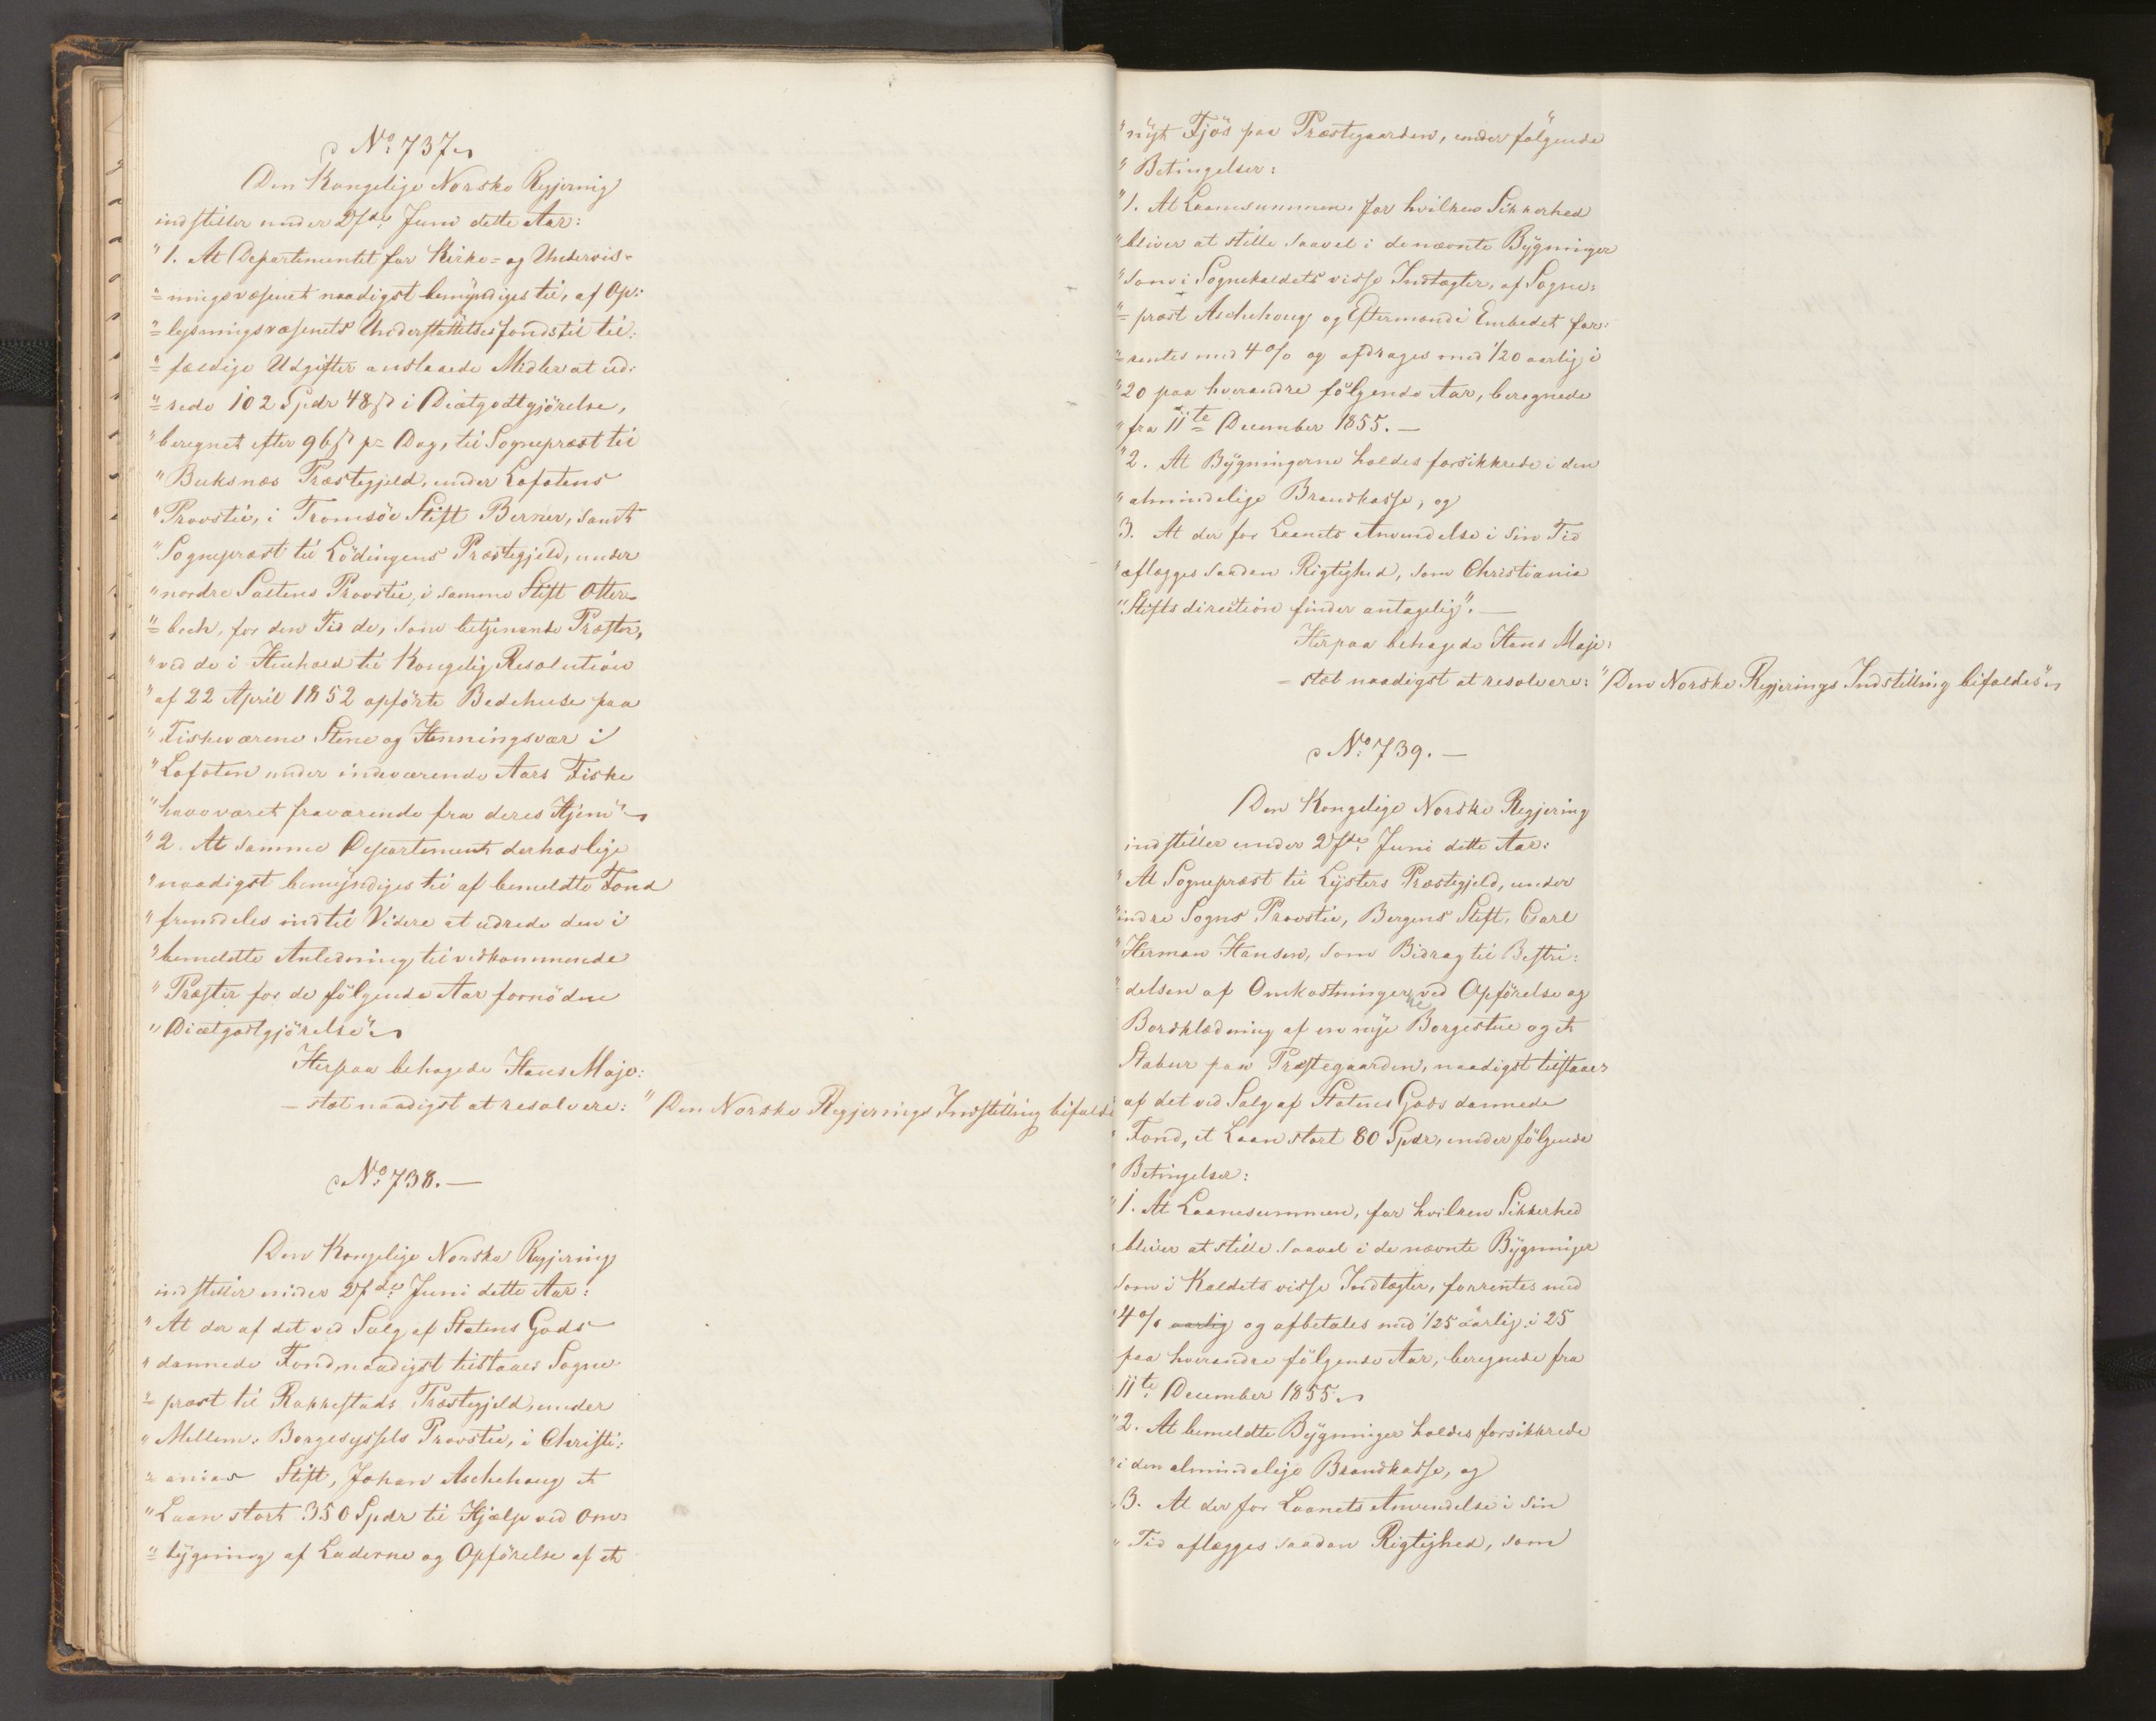 No 737.
Den Kongelige Norske Regjering
indstiller under 27de Juni dette Aar:
"1. At Departementet for Kirke- og Undervis-
"-ningsvæsenet naadigst bemyndiges til, af Op-
"-lysningsvæsenets Understøttelsesfonds til til-
"-fældige Udgifter anslaaede Midler at ud-
"-rede 102 Spdr 48 ß i Diætgodtgjörelse,
"beregnet efter 96 ß pr Dag, til Sognepræst til
"Buksnæs Præstegjeld, under Lofotens
"Provstie, i Tromsöe Stift Berner, samt
"Sognepræst til Lödingens Præstegjeld, under
"nordre Saltens Provstie, i samme Stift Otter-
"-bech, for den Tid de, som betjenende Præster,
"ved de i Henhold til Kongelig Resolution
"af 22 April 1852 opförte Bedehuse paa
"Fiskeværene Stene og Henningsvær i
"Lofoten under indeværende Aars Fiske
"have været fraværende fra deres Hjem"
"2. At samme Departement derhos lige
"naadigst bemyndiges til af bemeldte Fond
"fremdeles indtil Videre at udrede den i
"bemeldte Anledning til vedkommende
"Præster for de fölgende Aar fornödne
"Diætgodtgjörelse"
Herpaa behagede Hans Maje-
-stæt naadigst at resolvere: "Den Norske Regjerings Indstilling bifaldes
No 738.
Den Kongelige Norske Regjering
indstiller under 27de Juni dette Aar:
"At der af det ved Salg af Statens Gods
"dannede Fond naadigst tilstaaes Sogne-
"-præst til Rakkestads Præstegjeld, under
"Mellem-Borgesyssels Provstie, i Christi-
"-anias Stift, Johan Aschehoug et
"Laan stort 350 Spdr til Hjælp ved Om-
"-bygning af Laderne og Opförelse af et
"nyt Fjös paa Præstegaarden, under fölgende
"Betingelser:
"1. At Laanesummen, for hvilken Sikkerhed
"bliver at stille saavel i de nævnte Bygninger
"som i Sognekaldets visse Indtægter, af Sogne-
"-præst Aschehoug og Eftermænd i Embedet for-
"-rentes med 4 % og afdrages med 1/20 aarlig i
"20 paa hverandre fölgende Aar, beregnede
"fra 11te December 1855.
"2. At Bygningerne holdes forsikkrede i den
"almindelige Brandkasse, og
3. At der for Laanets Anvendelse i sin Tid
"aflægges saadan Rigtighed, som Christiania
"Stiftsdirection finder antagelig".
Herpaa behagede Hans Maje-
-stæt naadigst at resolvere: "Den Norske Regjerings Indstilling bifaldes"
No 739.
Den Kongelige Norske Regjering
indstiller under 27de Juni dette Aar:
"At Sognepræst til Lysters Præstegjeld, under
"indre Sogns Provstie, Bergens Stift, Carl
"Herman Hansen, som Bidrag til Bestri-
"-delsen af Omkostningerne ved Opförelse og
Bordklædning af en nye Borgestue og et
Stabur paa Præstegaarden, naadigst tilstaaes
af det ved Salg af Statens Gods dannede
"Fond, et Laan stort 80 Spdr, under fölgende
"Betingelser:
"1. At Laanesummen, for hvilken Sikkerhed
"bliver at stille saavel i de nævnte Bygninger
som i Kaldets visse Indtægter, forrentes med
"4 % aarlig og afbetales med 1/25 aarlig i 25
paa hverandre fölgende Aar, beregnede fra
11te December 1855.
"2. At bemeldte Bygninger holdes forsikkrede
"i den almindelige Brandkasse, og
"3. At der for Laanets Anvendelse i sin
"Tid aflægges saadan Rigtighed, som